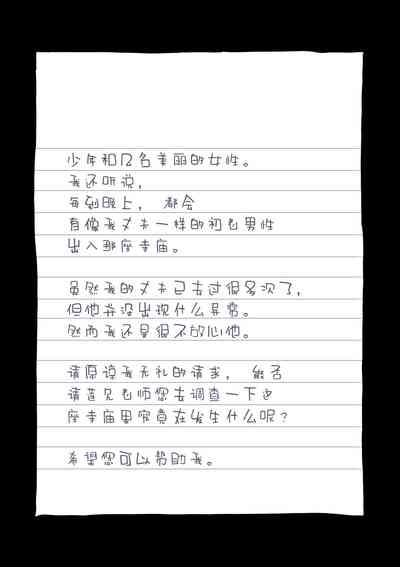 少年和几名美丽的女性。
我还听说，
每到晚上， 都会
有像我丈夫一样的初老男性
出入那座寺庙。
虽然我的丈夫已去过很多次了，
但他并没出现什么异常。
然而我还是很不放心他。
请原谅我无礼的请求， 能否
请普兄老师您去调查一下这
座寺庙里究竟在发生什么呢？
希望您可以帮助我。